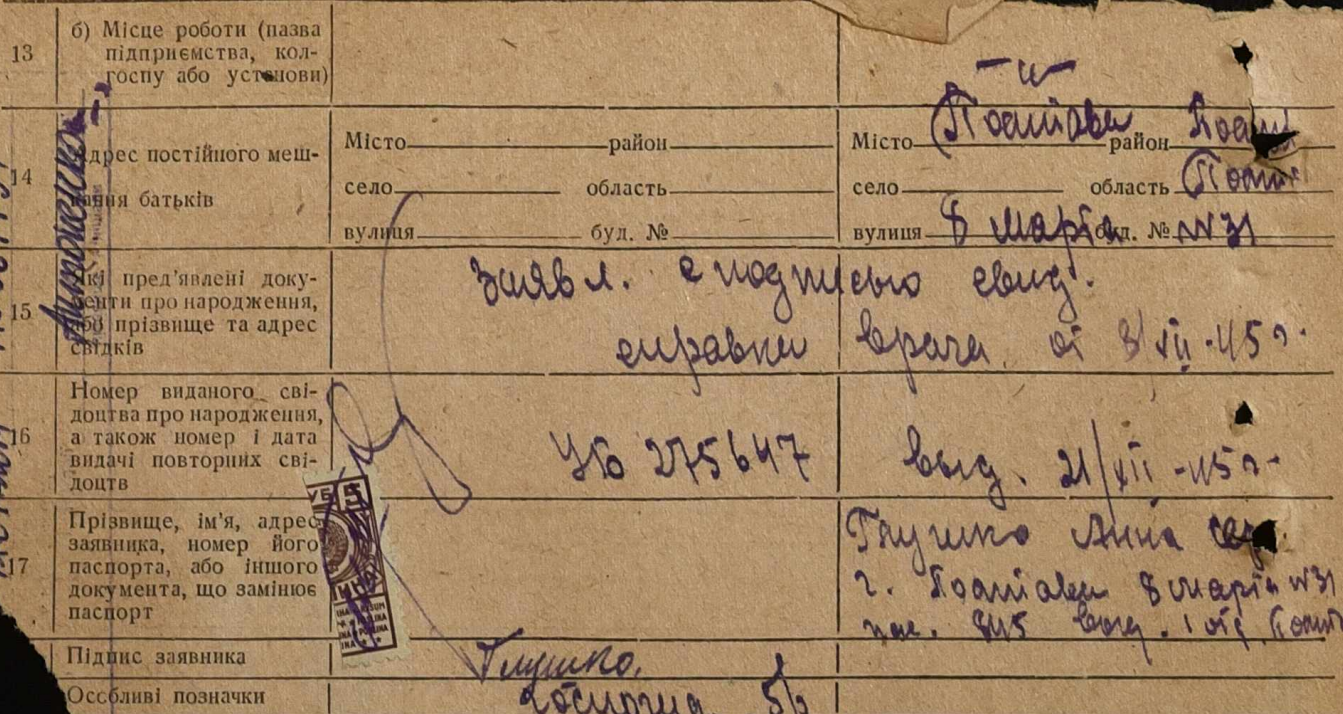 13
б) Місце роботи (назва
підприємства, кол-
госпу або установи)
— „ —
14
Адрес постійного меш-
кання батьків
Місто район
село область
вулиця буд. №
Місто Полтава район Полт
село область Полт
вулиця 8 марта буд. № №31
15
Які пред'явлені доку-
менти про народження,
або прізвище та адрес
свідків
Заявл. с подписью свид.
справка врача от 8/XII-45 г.
16
Номер виданого сві-
доцтва про народження,
а також номер і дата
видачі повторних сві-
доцтв
УБ 275647 выд. 21/XII-45 г.
17
Прізвище, ім'я, адрес
заявника, номер його
паспорта, або іншого
документа, що замінює
паспорт
Глушко Анна
г. Полтава 8 марта №31
выд. 1 отд. Полт
Підпис заявника
Глушко.
Особливі позначки
5б